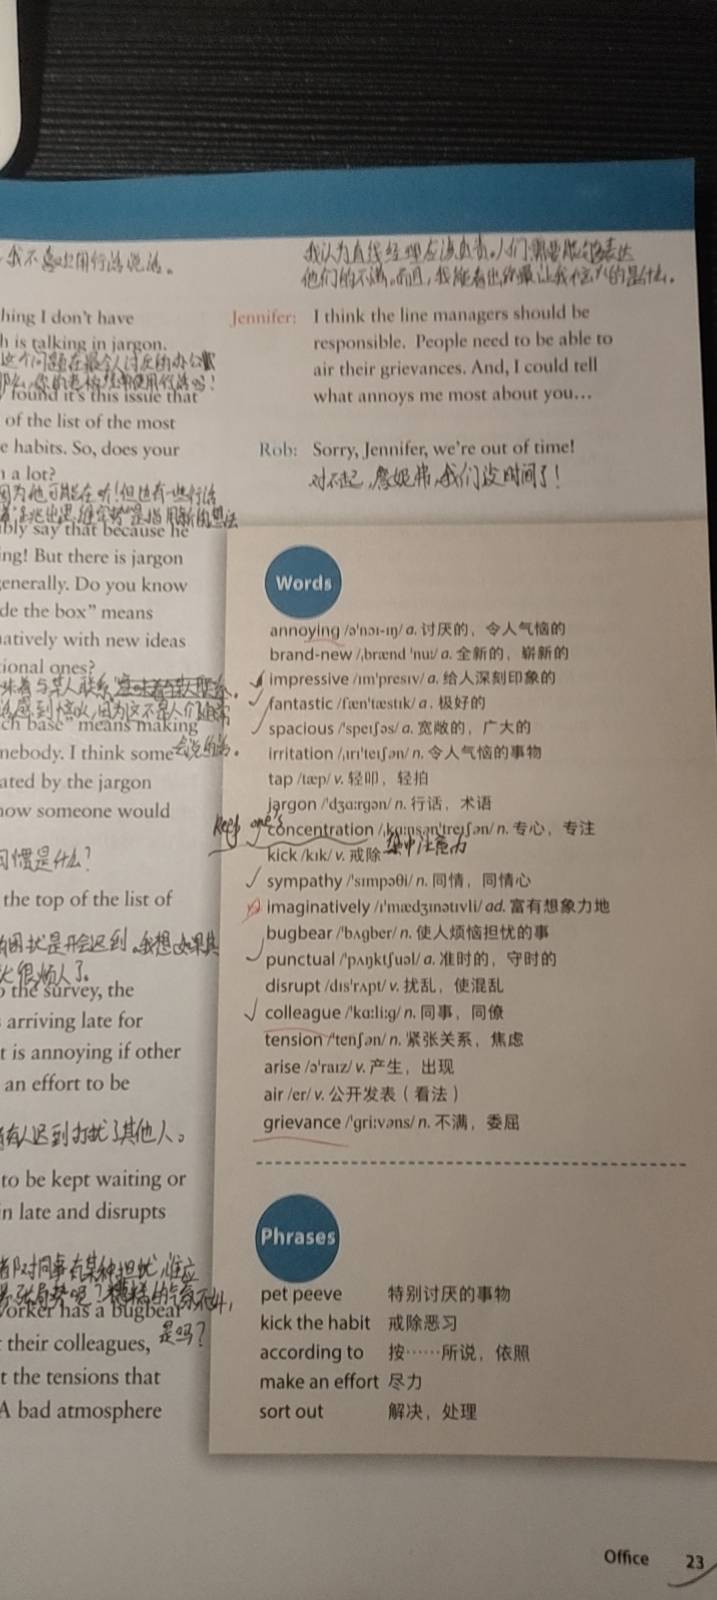 我不喜欢用行话说话。
hing I don't have
h is talking in jargon.
这个问题在最令人讨厌的办公室
found it's this issue that
of the list of the most
e habits. So, does your
n a lot?
因为他可能在听!但也有一些行话
ibly say that because he
ing! But there is jargon
generally. Do you know
de the box" means
natively with new ideas
tional ones?
味着与某人联系
ch base" means making
mebody. I think some
会说的话。
ated by the jargon
how someone would
习惯是什么?
the top of the list of
困扰是开会迟到。我想如果其
很烦人了。
o the survey, the
arriving late for
t is annoying if other
an effort to be
有人迟到打扰了其他人。
to be kept waiting or
in late and disrupts
都对同事有某种担忧,
worker has a bugbear
是吗?
their colleagues,
t the tensions that
A bad atmosphere
我认为直线经理应该负责。人们需要能够表达
他们的不满。而且,我能看出你最让我不高兴的是什么。
Jennifer: I think the line managers should be
responsible. People need to be able to
air their grievances. And, I could tell
what annoys me most about you…
Rob: Sorry, Jennifer, we're out of time!
对不起,詹妮弗,我们没时间了!
Words
annoying /ə'nɔɪ-ɪŋ/ a. 讨厌的，令人气恼的
brand-new /ˌbrænd 'nuː/ a. 全新的，崭新的
impressive /ɪm'presɪv/ a. 给人深刻印象的
fantastic /fæn'tæstɪk/ a. 极好的
spacious /'speɪʃəs/ a. 宽敞的，广大的
irritation /ˌɪrɪ'teɪʃən/ n. 令人气恼的事物
tap /tæp/ v. 轻叩，轻拍
jargon /'dʒɑːrgən/ n. 行话，术语
keep one's
concentration /ˌkɑːnsən'treɪʃən/ n. 专心，专注
kick /kɪk/ v. 戒除
集中注意力
sympathy /'sɪmpəθi/ n. 同情，同情心
imaginatively /ɪ'mædʒɪnətɪvli/ ad. 富有想象力地
bugbear /'bʌgber/ n. 使人烦恼担忧的事
punctual /'pʌŋktʃuəl/ a. 准时的，守时的
disrupt /dɪs'rʌpt/ v. 扰乱，使混乱
colleague /'kɑːliːg/ n. 同事，同僚
tension /'tenʃən/ n. 紧张关系，焦虑
arise /ə'raɪz/ v. 产生，出现
air /er/ v. 公开发表（看法）
grievance /'griːvəns/ n. 不满，委屈
Phrases
pet peeve 特别讨厌的事物
kick the habit 戒除恶习
according to 按……所说，依照
make an effort 尽力
sort out 解决，处理
Office 23